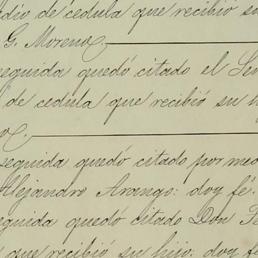 dio de cedula que recibió su
G. Moreno.
seguida quedó citado el Señ
de cedula que recibió su
o.
seguida quedó citado por med
Alejandro Arango: doy fé.
guida quedó citado Don
que recibió su hijo: doy fé